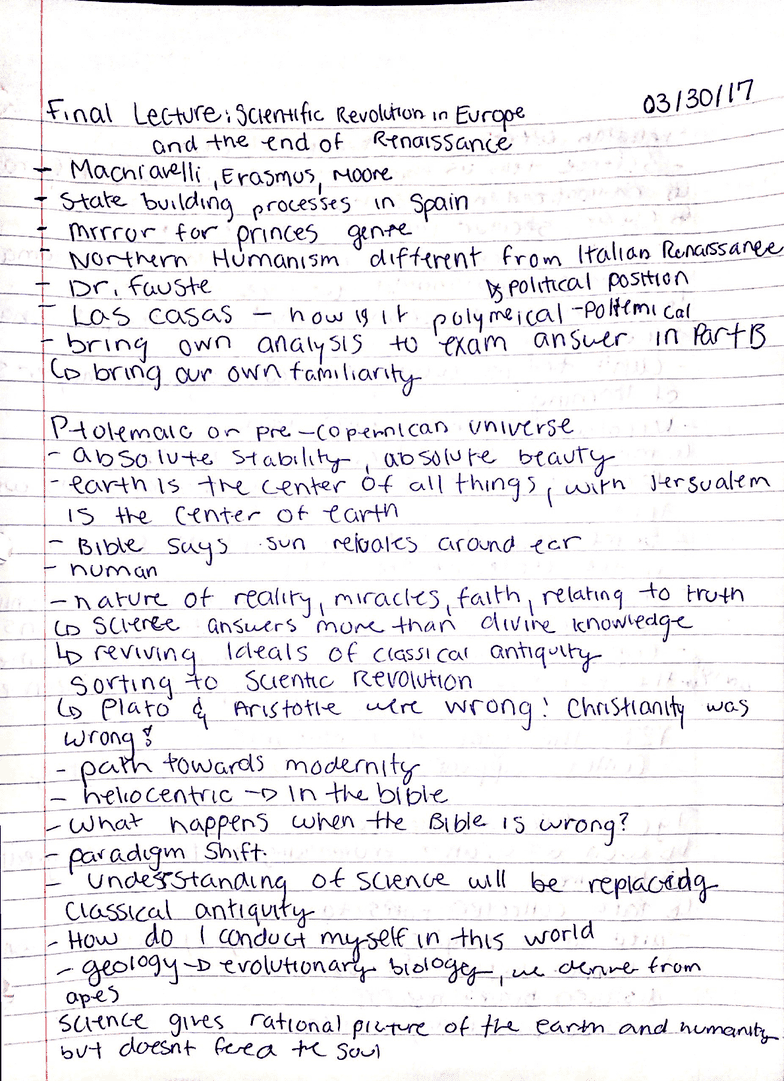 03/30/17
Final Lecture: Scientific Revolution in Europe
and the end of Renaissance
- Machiavelli, Erasmus, Moore
- State building processes in Spain
- mirror for princes genre
- Northern Humanism different from Italian Renaissance
- Dr. Fauste ↳ political position
- Las casas - how is it polymeical - poltemical
- bring own analysis to exam answer in Part B
↳ bring our own familiarity
Ptolemaic or pre-copernican universe
- absolute stability, absolute beauty
- earth is the center of all things, with Jersualem
is the center of earth
- Bible says sun around ear
- human
- nature of reality, miracles, faith, relating to truth
↳ science answers more than divine knowledge
↳ reviving ideals of classical antiquity
Sorting to Scientic Revolution
↳ Plato & Aristotle were wrong! Christianity was
wrong!
- path towards modernity
- heliocentric → in the bible
- What happens when the Bible is wrong?
- paradigm shift.
- understanding of science will be
classical antiquity
- How do I conduct myself in this world
- geology → evolutionary biology, we derive from
apes
science gives rational picture of the earth and humanity
but doesnt feed the soul